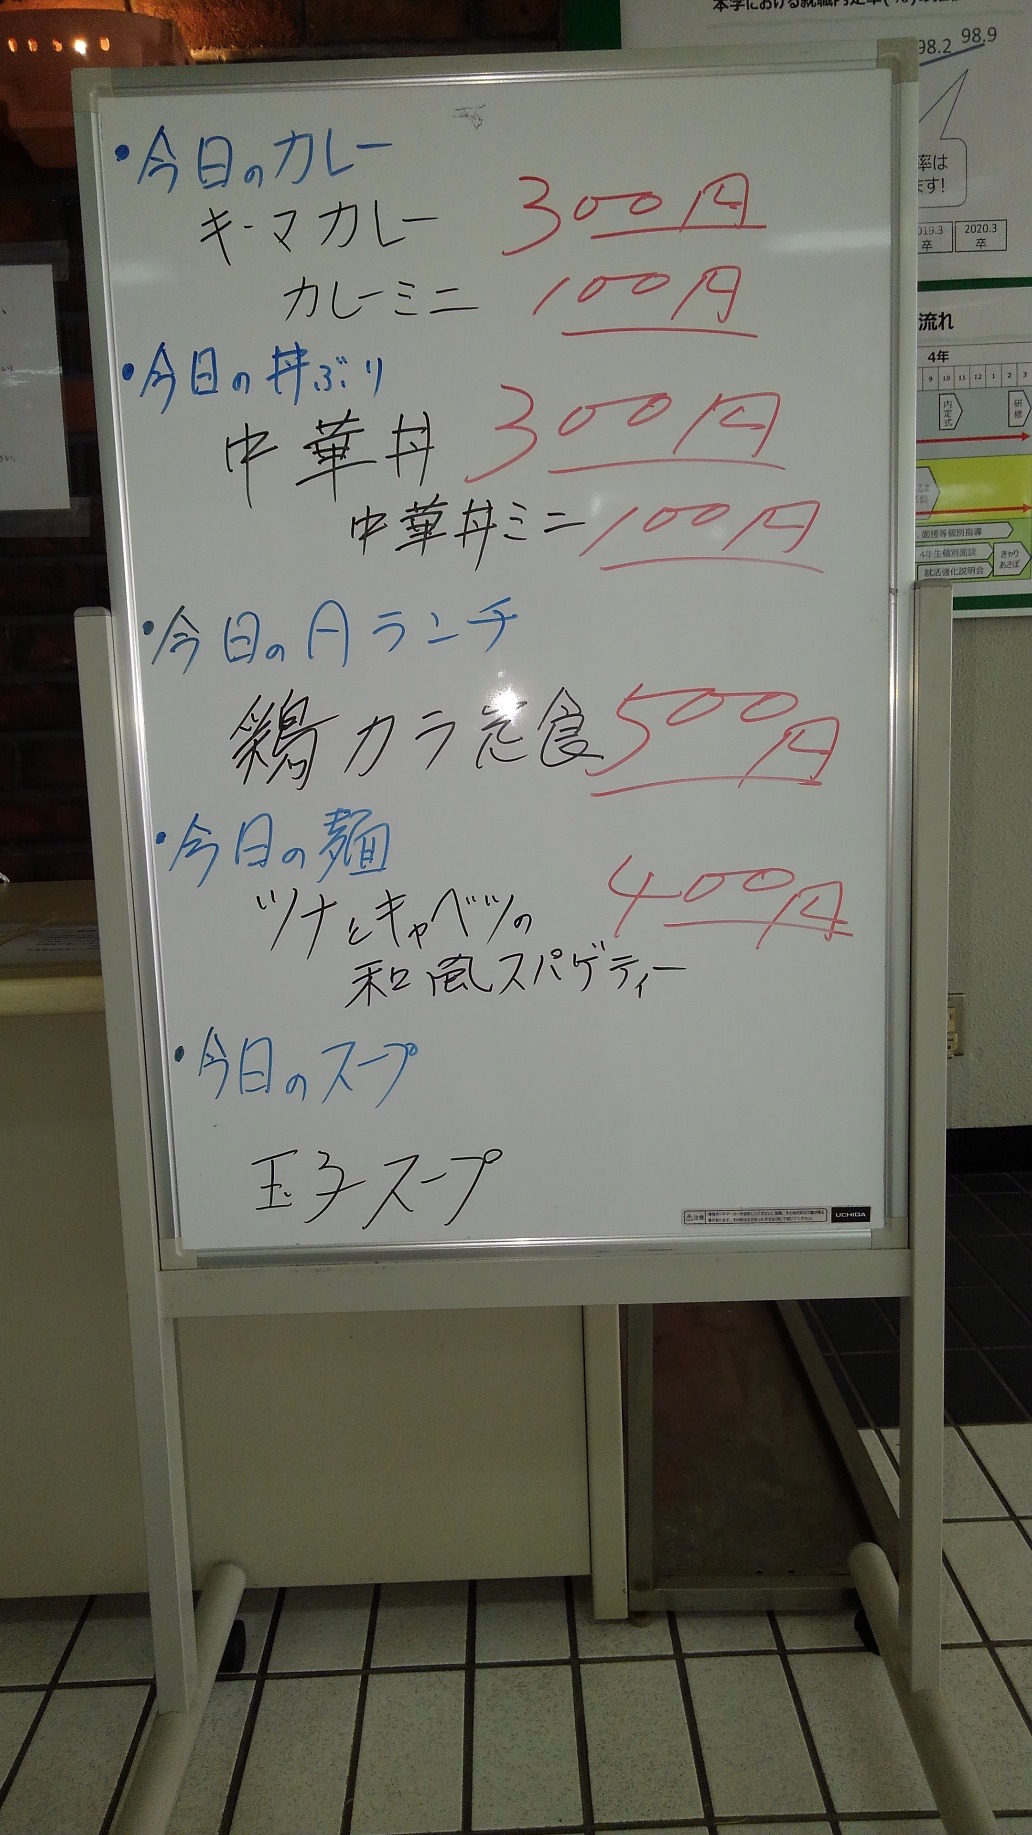 ・今日のカレー
キーマカレー 300円
カレーミニ 100円
・今日の丼ぶり
中華丼 300円
中華丼ミニ 100円
・今日のAランチ
鶏カラ定食 500円
・今日の麺
ツナとキャベツの 400円
和風スパゲティー
・今日のスープ
玉子スープ
注意
UCHIDA
98.2 98.9
率は
ます!
2019.3 2020.3
卒 卒
流れ
4年
9 10 11 12 1 2 3
内定式
研修
面接等個別指導
4年生個別面談
就活強化説明会
きゃりあさぽ